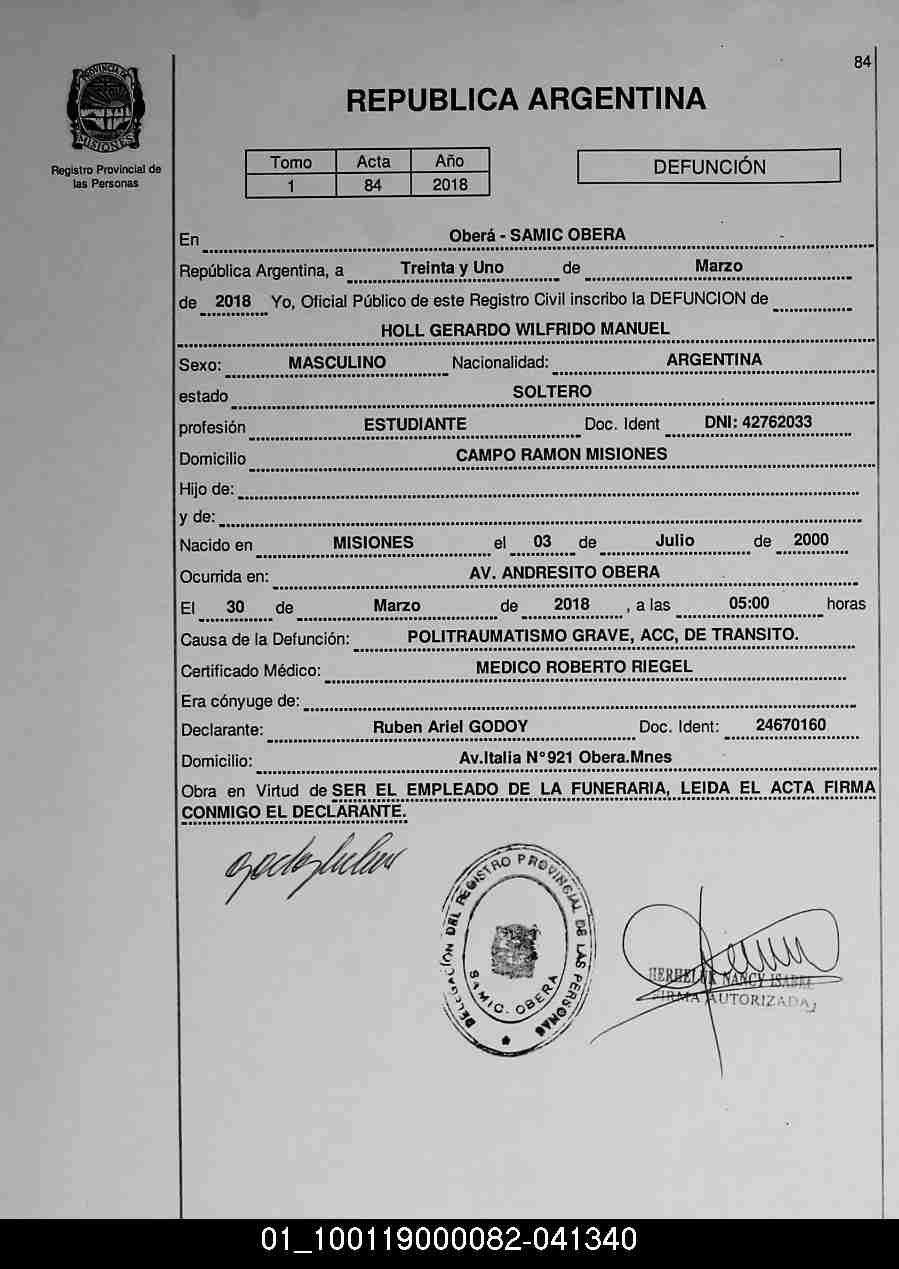 84
PROVINCIA DE
MISIONES
Registro Provincial de
las Personas
REPUBLICA ARGENTINA
Tomo Acta Año
1 84 2018
DEFUNCIÓN
En Oberá - SAMIC OBERA
República Argentina, a Treinta y Uno de Marzo
de 2018 Yo, Oficial Público de este Registro Civil inscribo la DEFUNCION de
HOLL GERARDO WILFRIDO MANUEL
Sexo: MASCULINO Nacionalidad: ARGENTINA
estado SOLTERO
profesión ESTUDIANTE Doc. Ident DNI: 42762033
Domicilio CAMPO RAMON MISIONES
Hijo de:
y de:
Nacido en MISIONES el 03 de Julio de 2000
Ocurrida en: AV. ANDRESITO OBERA
El 30 de Marzo de 2018 , a las 05:00 horas
Causa de la Defunción: POLITRAUMATISMO GRAVE, ACC, DE TRANSITO.
Certificado Médico: MEDICO ROBERTO RIEGEL
Era cónyuge de:
Declarante: Ruben Ariel GODOY Doc. Ident: 24670160
Domicilio: Av.Italia N°921 Obera.Mnes
Obra en Virtud de SER EL EMPLEADO DE LA FUNERARIA, LEIDA EL ACTA FIRMA
CONMIGO EL DECLARANTE.
DELEGACIÓN DEL REGISTRO PROVINCIAL DE LAS PERSONAS
SAMIC. OBERA
NANCY ISABEL
FIRMA AUTORIZADA
01_100119000082-041340